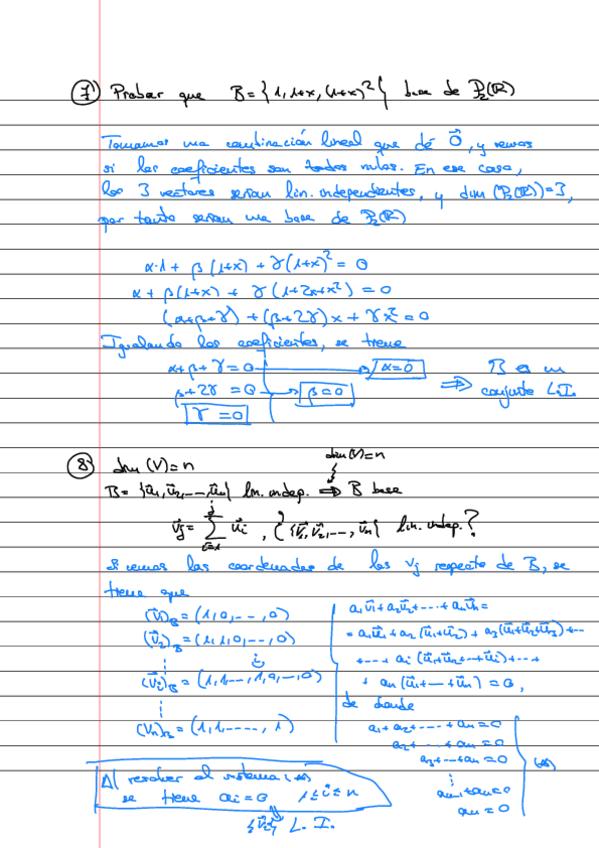 7 Probar que B = {1, 1+x, (1+x)²} base de P₂(ℝ)
Tomamos una combinación lineal que dé 0⃗, y vemos
si los coeficientes son todos nulos. En ese caso,
los 3 vectores serían lin. independientes, y dim (P₂(ℝ))=3,
por tanto serían una base de P₂(ℝ)
α·1 + β(1+x) + γ(1+x)² = 0
α + β(1+x) + γ(1+2x+x²) = 0
(α+β+γ) + (β+2γ)x + γx² = 0
Igualando los coeficientes, se tiene
α+β+γ = 0 → α=0
β+2γ = 0 → β=0
γ = 0
⇒ B es un
conjunto L.I.
8 dim (V) = n
dim(V)=n
B = {u⃗₁, u⃗₂, ..., u⃗ₙ} lin. indep. ⇒ B base
v⃗ⱼ = ∑ᵢ₌₁ʲ u⃗ᵢ, ¿{v⃗₁, v⃗₂, ..., v⃗ₙ} lin. indep.?
Si vemos las coordenadas de los vⱼ respecto de B, se
tiene que
(v⃗₁)B = (1, 0, ..., 0)
(v⃗₂)B = (1, 1, 0, ..., 0)
⋮
i
(v⃗ᵢ)B = (1, 1, ..., 1, 0, ..., 0)
⋮
(vₙ)B = (1, 1, ..., 1)
a₁v⃗₁ + a₂v⃗₂ + ... + aₙv⃗ₙ =
= a₁u⃗₁ + a₂(u⃗₁+u⃗₂) + a₃(u⃗₁+u⃗₂+u⃗₃) + ...
+ ... + aᵢ(u⃗₁+u⃗₂+...+u⃗ᵢ) + ... +
+ aₙ(u⃗₁+...+u⃗ₙ) = 0,
de donde
a₁ + a₂ + ... + aₙ = 0
a₂ + ... + aₙ = 0
a₃ + ... + aₙ = 0 (*)
⋮
aₙ₋₁ + aₙ = 0
aₙ = 0
Al resolver el sistema (*)
se tiene aᵢ = 0 1≤i≤n
⇓
{v⃗ᵢ} L.I.